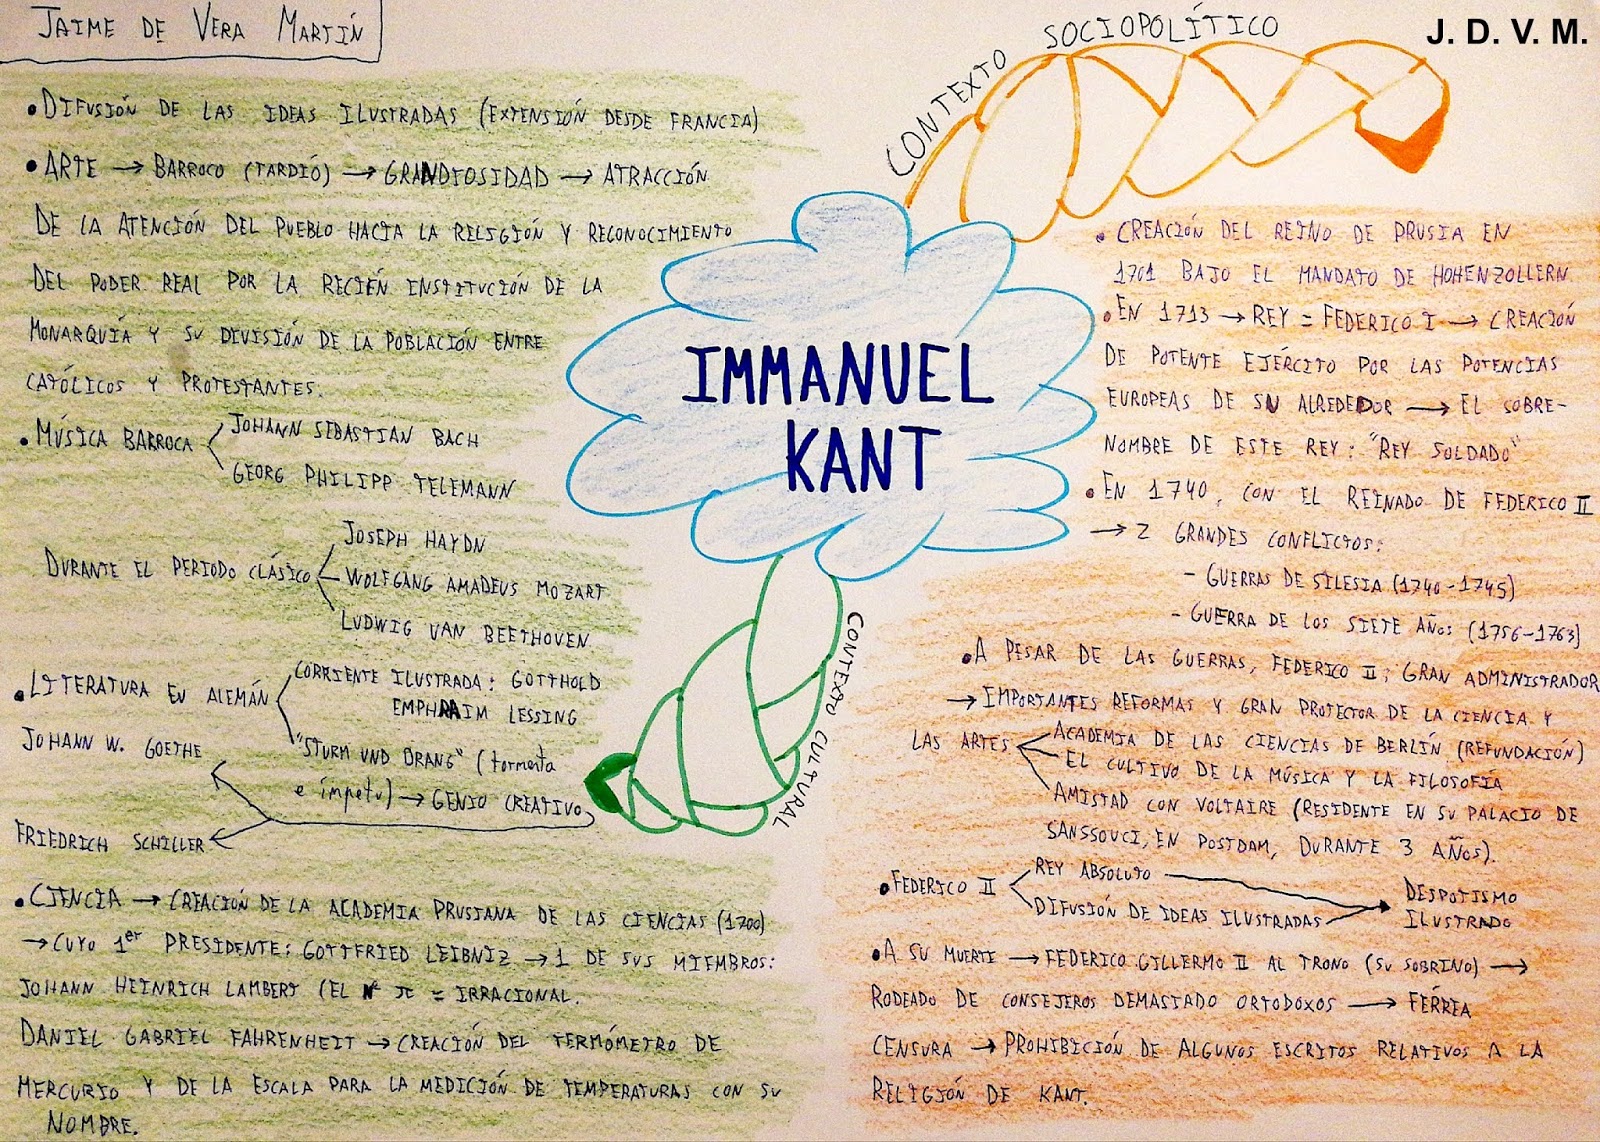 JAIME DE VERA MARTÍN
J. D. V. M.
IMMANUEL
KANT
CONTEXTO CULTURAL
• DIFUSIÓN DE LAS IDEAS ILUSTRADAS (EXTENSIÓN DESDE FRANCIA)
• ARTE → BARROCO (TARDIÓ) → GRANDIOSIDAD → ATRACCIÓN
DE LA ATENCIÓN DEL PUEBLO HACIA LA RELIGIÓN Y RECONOCIMIENTO
DEL PODER REAL POR LA RECIÉN INSTITUCIÓN DE LA
MONARQUÍA Y SU DIVISIÓN DE LA POBLACIÓN ENTRE
CATÓLICOS Y PROTESTANTES.
• MÚSICA BARROCA
JOHANN SEBASTIAN BACH
GEORG PHILIPP TELEMANN
DURANTE EL PERIODO CLÁSICO
JOSEPH HAYDN
WOLFGANG AMADEUS MOZART
LUDWIG VAN BEETHOVEN
• LITERATURA EN ALEMÁN
CORRIENTE ILUSTRADA: GOTTHOLD
EMPHRAIM LESSING
"STURM UND DRANG" (tormenta
e ímpetu) → GENIO CREATIVO
JOHANN W. GOETHE
FRIEDRICH SCHILLER
• CIENCIA → CREACIÓN DE LA ACADEMIA PRUSIANA DE LAS CIENCIAS (1700)
→ CUYO 1er PRESIDENTE: GOTTFRIED LEIBNIZ → 1 DE SUS MIEMBROS:
JOHANN HEINRICH LAMBERT (EL Nº π = IRRACIONAL.
DANIEL GABRIEL FAHRENHEIT → CREACIÓN DEL TERMÓMETRO DE
MERCURIO Y DE LA ESCALA PARA LA MEDICIÓN DE TEMPERATURAS CON SU
NOMBRE.
CONTEXTO SOCIOPOLÍTICO
• CREACIÓN DEL REINO DE PRUSIA EN
1701 BAJO EL MANDATO DE HOHENZOLLERN.
• EN 1713 → REY = FEDERICO I → CREACIÓN
DE POTENTE EJÉRCITO POR LAS POTENCIAS
EUROPEAS DE SU ALREDEDOR → EL SOBRE-
NOMBRE DE ESTE REY: "REY SOLDADO"
• EN 1740, CON EL REINADO DE FEDERICO II
→ 2 GRANDES CONFLICTOS:
- GUERRAS DE SILESIA (1740-1745)
- GUERRA DE LOS SIETE AÑOS (1756-1763)
• A PESAR DE LAS GUERRAS, FEDERICO II: GRAN ADMINISTRADOR
→ IMPORTANTES REFORMAS Y GRAN PROTECTOR DE LA CIENCIA Y
LAS ARTES
ACADEMIA DE LAS CIENCIAS DE BERLÍN (REFUNDACIÓN)
EL CULTIVO DE LA MÚSICA Y LA FILOSOFÍA
AMISTAD CON VOLTAIRE (RESIDENTE EN SU PALACIO DE
SANSSOUCI, EN POSTDAM, DURANTE 3 AÑOS).
• FEDERICO II
REY ABSOLUTO
DIFUSIÓN DE IDEAS ILUSTRADAS
DESPOTISMO
ILUSTRADO
• A SU MUERTE → FEDERICO GILLERMO II AL TRONO (SU SOBRINO) →
RODEADO DE CONSEJEROS DEMASIADO ORTODOXOS → FÉRREA
CENSURA → PROHIBICIÓN DE ALGUNOS ESCRITOS RELATIVOS A LA
RELIGIÓN DE KANT.